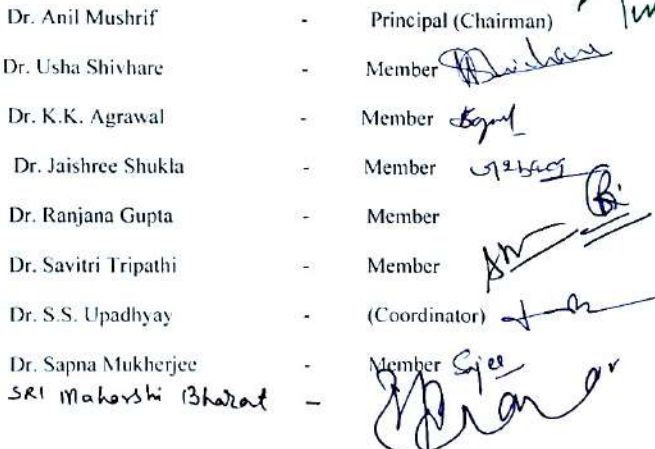 Dr. Anil Mushrif - Principal (Chairman)
Dr. Usha Shivhare - Member
Dr. K.K. Agrawal - Member
Dr. Jaishree Shukla - Member
Dr. Ranjana Gupta - Member
Dr. Savitri Tripathi - Member
Dr. S.S. Upadhyay - (Coordinator)
Dr. Sapna Mukherjee - Member
SRI Maharshi Bharat -